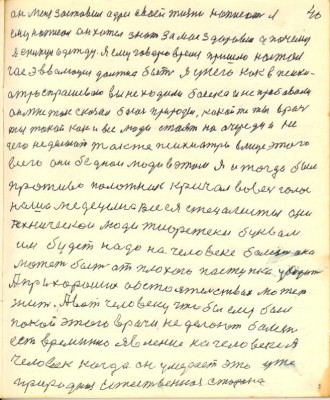 он меня заставил адрес своей жизни написат я 40
ему написал он хотел знат за мое здоровя и почему
я скинул одежду. Я ему говорю время пришло на том
час эвволюция должна быть я у него как в психи-
атра спрашиваю вы не ходили болели и не пробовали
он мне так сказал богат природы, какой ти ти врач
ти такой как и все люди стоят на очереди и не
чего не делают та
всего они бедном люди в этом Я и тогда был
против положник кричал во всех голос
наша медецина вся специалисти они
технической люди тиоретеки буквам
им будет надо на человеке болезн она
может быт от плохого поступка уходит
А при хороших обстоятелствах может
жит. А вот человеку чтобы ему был
покой этого врачи не делают болезн
ест временно явление на человеке А
человек когда он умерает это уже
природная естественная сторона